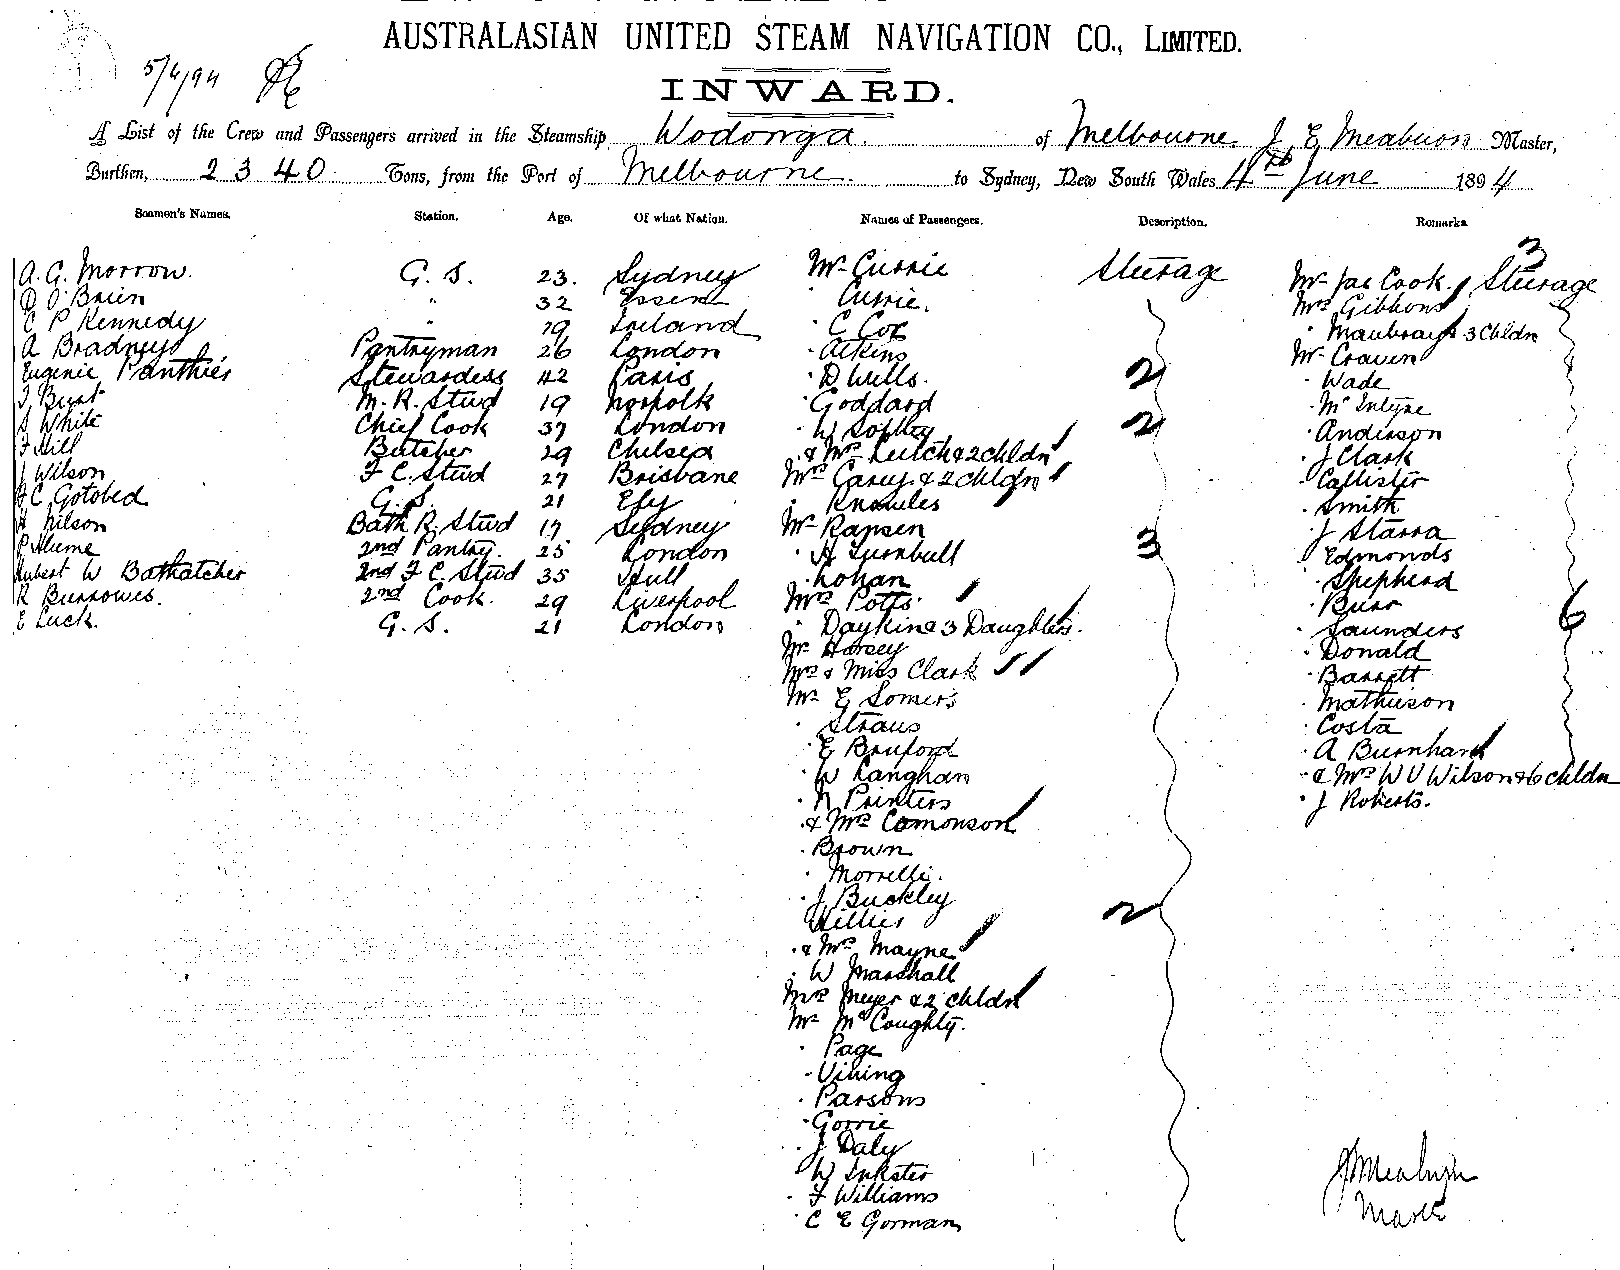 AUSTRALASIAN UNITED STEAM NAVIGATION CO., LIMITED.
5/6/94
INWARD.
A List of the Crew and Passengers arrived in the Steamship Wodonga. of Melbourne J E Meaburn Master,
Burthen, 2340 Tons, from the Port of Melbourne. to Sydney, New South Wales 4th June 1894
Seamen's Names. Station. Age. Of what Nation. Names of Passengers. Description. Remarks.
A. G. Morrow. G. S. 23. Sydney
D O'Brien " 32 Essen
C P Kennedy " 19 Ireland
A Bradney Pantryman 26 London
Eugenie Panthier Stewardess 42 Paris
Burt M. R. Stud 19 Norfolk
S White Chief Cook 37 London
F Hill Butcher 29 Chelsea
J Wilson F C. Stud 27 Brisbane
C Gotobed G. S. 21 Ely
Nilson Bath R. Stud 17 Sydney
P Hume 2nd Pantry. 25 London
Hubert W Bathatcher 2nd F C. Stud 35 Hull
R Burrowes. 2nd Cook. 29 Liverpool
E Luck. G. S. 21 London
Mr Currie Steerage
" Currie.
" C Cox
" Atkins
" D Wells. 2
" Goddard
" W Sophey 2
" & Mrs Leitch & 2 chldn
Mrs Carey & 2 chldn
" Knowles
Mr Ransen
" H Turnbull 3
" Lohan
Mrs Potts
" Daykin & 3 Daughters.
Mr Harsey
Mrs & Miss Clark
Mr E Somers
" Straus
" E Bruford
" W Langhan
" N Printers
" & Mrs Comonson
" Brown
" Morrelli.
" J Buckley
" Willies 2
" & Mrs Mayne
" W Marshall
Mrs Meyer & 2 chldn
Mr McCoughty.
" Page
" Vining
" Parsons
" Gorrie
" J Daly
" W Inkster
" F Williams
" C E Gorman
3
Mr Jas Cook. Steerage
Mrs Gibbons
" Maubray & 3 Chldn
Mr Craven
" Wade
" McIntyre
" Anderson
" J Clark
" Callister
" Smith
" J Starra
" Edmonds
" Shepherd
" Burr 6
" Saunders
" Donald
" Barrett
" Mathieson
" Costa
" A Burnhard
" & Mrs W V Wilson & 6 chldn
" J Roberts.
J E Meaburn
Master